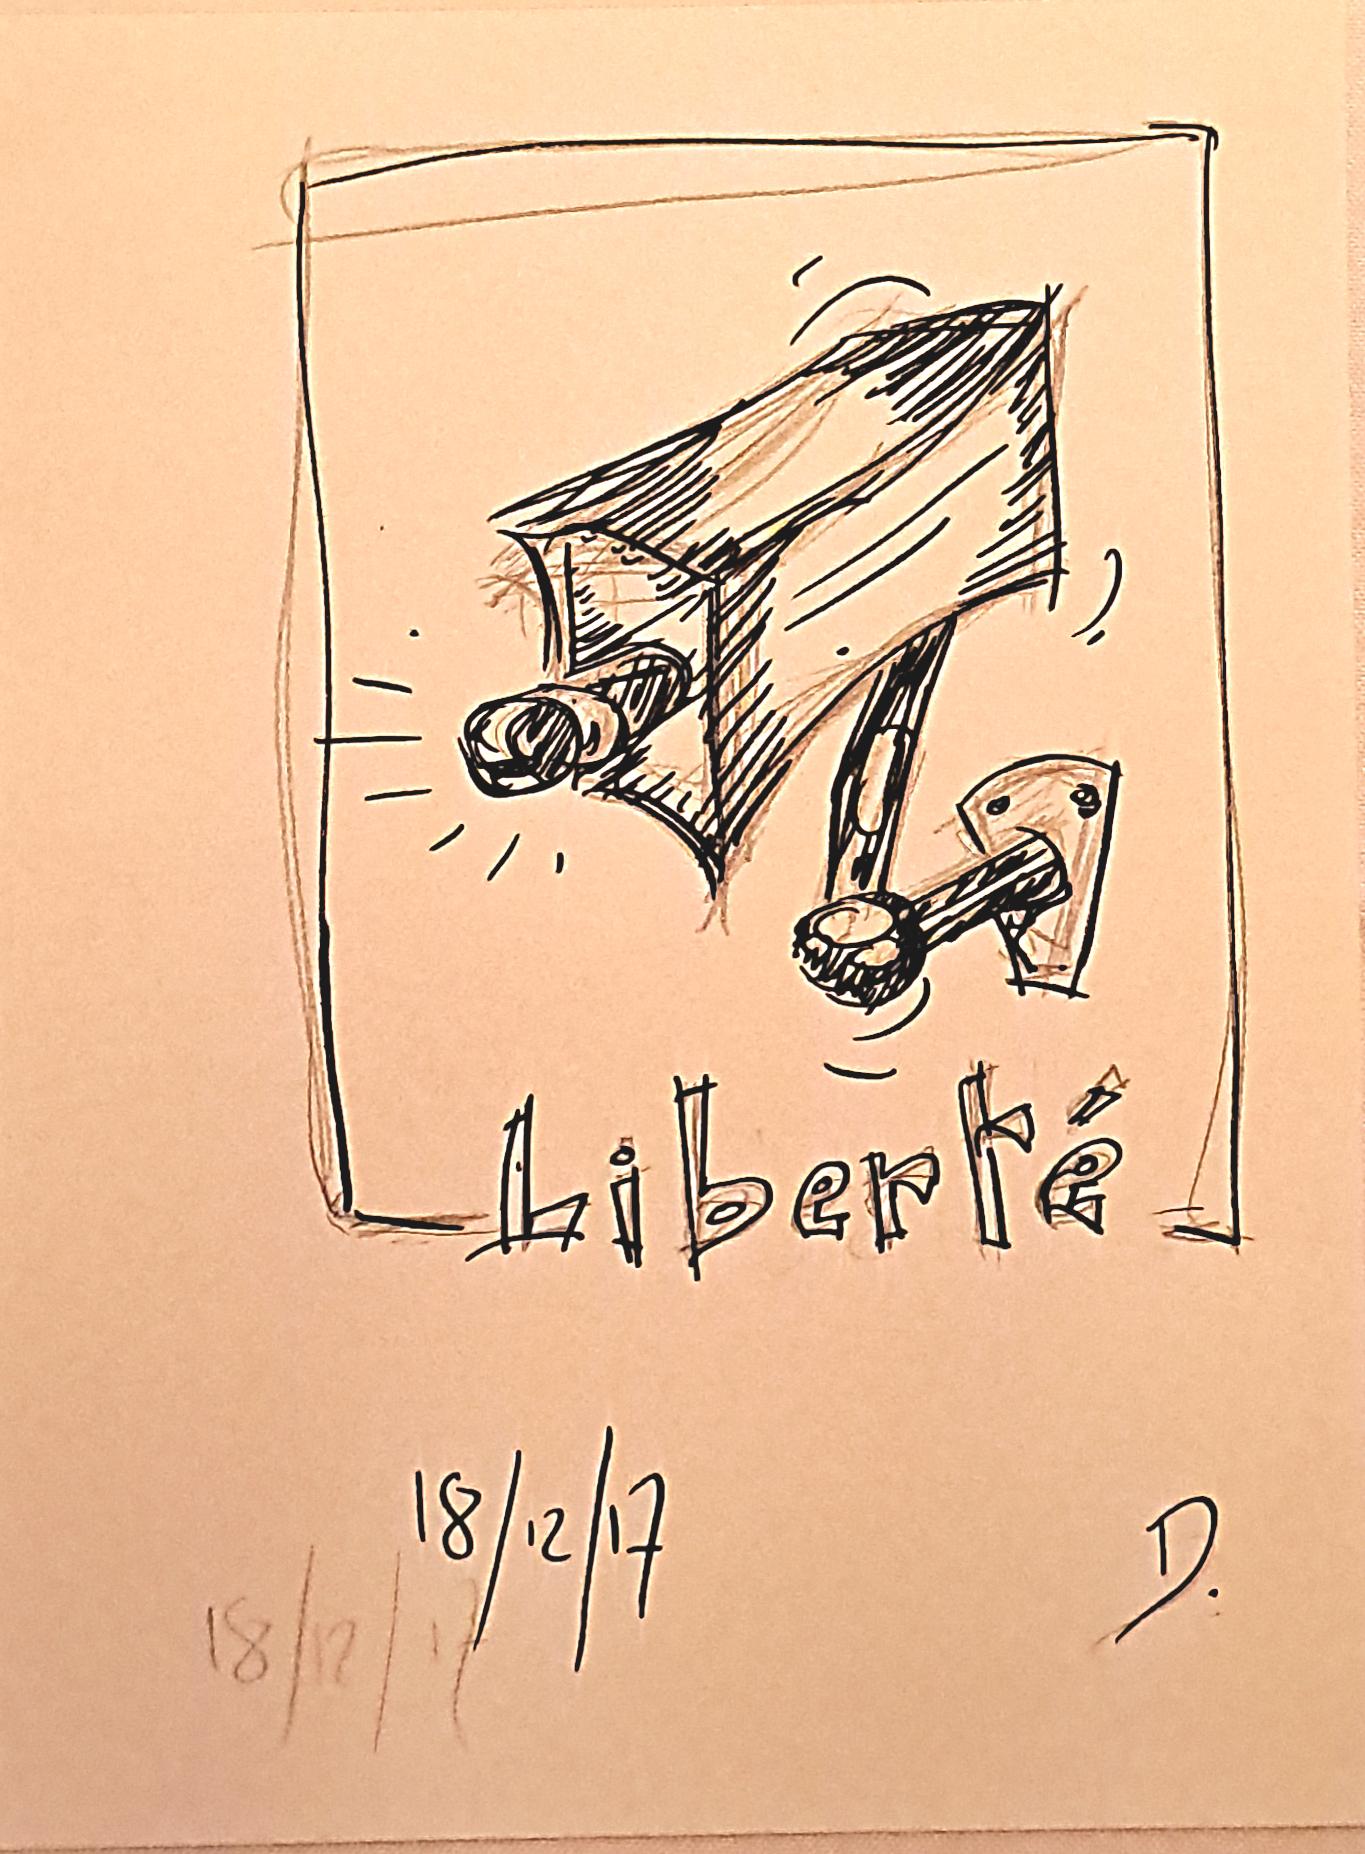 Liberté
18/12/17
D.
18/12/17